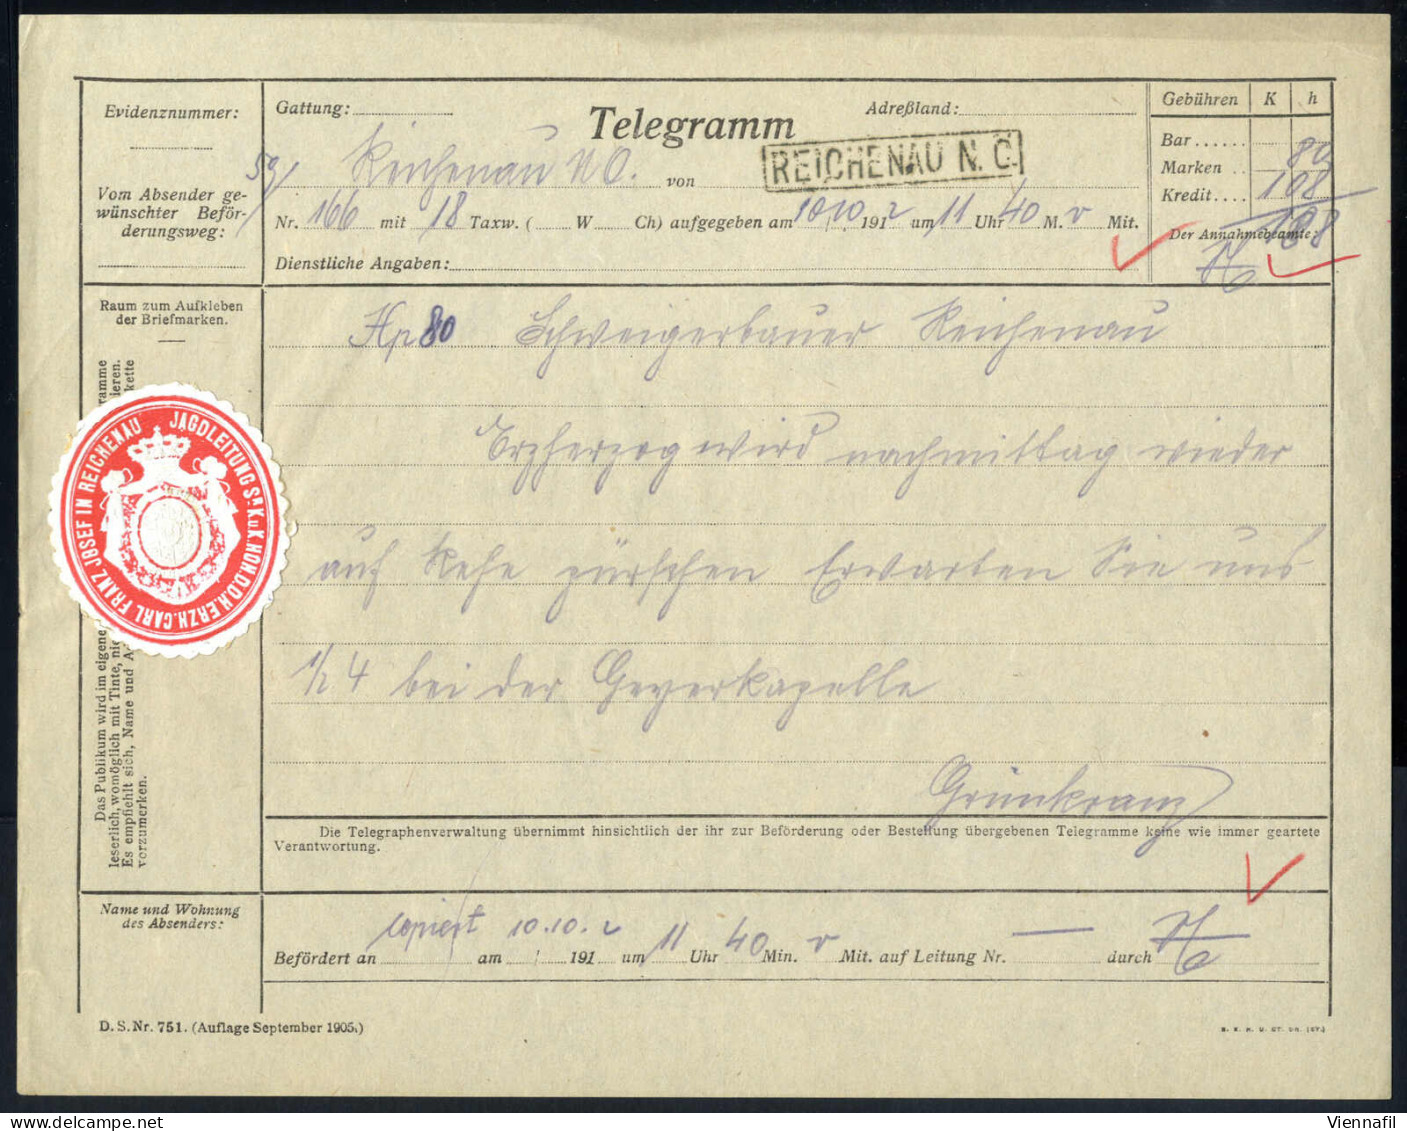 Evidenznummer:
Gattung:
Telegramm
Adreßland:
Gebühren K h
Bar
Marken 80
Kredit 108
188
Der Annahmebeamte:
Vom Absender ge-
wünschter Beför-
derungsweg:
Reichenau NÖ. von REICHENAU N. Ö.
Nr. 166 mit 18 Taxw. ( W Ch) aufgegeben am 10/10 1912 um 11 Uhr 40 M. v Mit.
Dienstliche Angaben:
Raum zum Aufkleben
der Briefmarken.
JAGDLEITUNG Sr. K. u. K. HOH. D. D. H. ERZH. CARL FRANZ JOSEF IN REICHENAU
Das Publikum wird im eigene
leserlich, womöglich mit Tinte, nie
Es empfiehlt sich, Name und A
vorzumerken.
ramme
ieren.
kette
Xp 80 Schweigerbauer Reichenau
Erzherzog wird nachmittag wieder
auf Rehe pürschen Erwarten Sie uns
1/2 4 bei der Geyerkapelle
Grünkranz
Die Telegraphenverwaltung übernimmt hinsichtlich der ihr zur Beförderung oder Bestellung übergebenen Telegramme keine wie immer geartete
Verantwortung.
Name und Wohnung
des Absenders:
Befördert an kopiert am 10.10. 1912 um 11 Uhr 40 Min. v Mit. auf Leitung Nr. — durch
D. S. Nr. 751. (Auflage September 1905.)
Viennafil